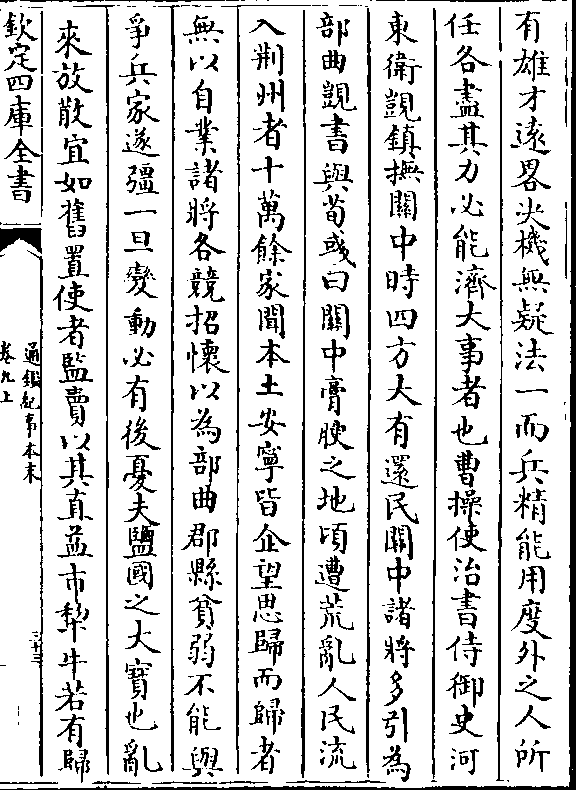 有雄才遠畧决機無疑法一而兵精能用度外之人所
任各盡其力必能濟大事者也曹操使治書侍御史河
東衛覬鎮撫關中時四方大有還民關中諸將多引為
部曲覬書與荀彧曰關中膏腴之地頃遭荒亂人民流
入荆州者十萬餘家聞本土安寧皆企望思歸而歸者
無以自業諸將各競招懷以為部曲郡縣貧弱不能與
爭兵家遂彊一旦變動必有後憂夫鹽國之大寶也亂
來放散宜如舊置使者監賣以其直益市犂牛若有歸
欽定四庫全書
通鑑紀事本末
卷九上
三十三